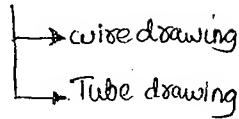 wire drawing
Tube drawing